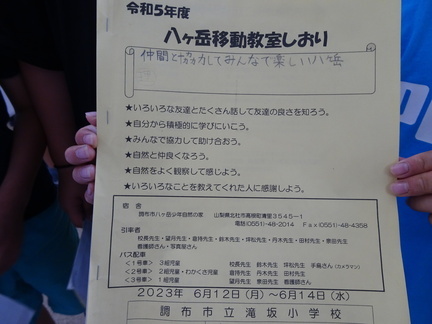 令和5年度
八ヶ岳移動教室しおり
仲間と協力してみんなで楽しい八ヶ岳
★いろいろな友達とたくさん話して友達の良さを知ろう。
★自分から積極的に学びにいこう。
★みんなで協力して助け合おう。
★自然と仲良くなろう。
★自然をよく観察して感じよう。
★いろいろなことを教えてくれた人に感謝しよう。
宿舎
調布市八ヶ岳少年自然の家 山梨県北杜市高根町清里3545-1
電話(0551)-48-2014 Fax(0551)-48-4358
引率者
校長先生・望月先生・音持先生・鈴木先生・坪松先生・丹木先生・田村先生・恵田先生
看護師さん・写真屋さん
バス配車
<1号車> 3組児童 校長先生 鈴木先生 坪松先生 手島さん(カメラマン)
<2号車> 2組児童・わかくさ児童 音持先生 丹木先生 田村先生
<3号車> 1組児童 望月先生 恵田先生 看護師さん
2023年 6月12日(月)～6月14日(水)
調布市立滝坂小学校